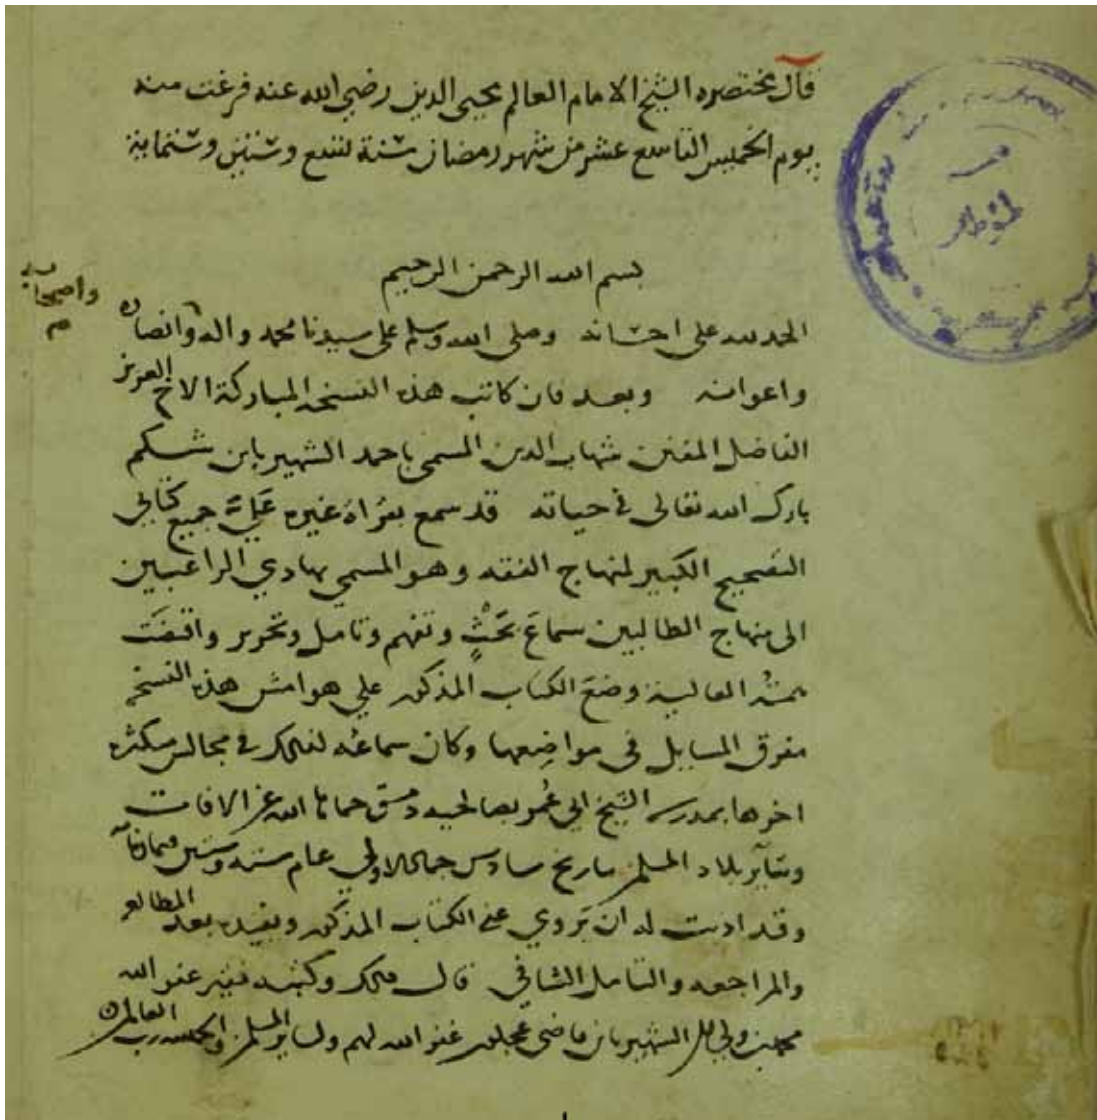 قال مختصره الشيخ الامام العالم محيي الدين رضي الله عنه فرغت منه
يوم الخميس التاسع عشر من شهر رمضان سنة تسع وستين وستماية
بسم الله الرحمن الرحيم
الحمد لله على احسانه وصلى الله وسلم على سيدنا محمد واله وانصاره
واصحابه
واعوانه وبعد فان كاتب هذه النسخة المباركة الاخ العزيز
الفاضل المفنن شهاب الدين المسمى باحمد الشهير بابن شكم
بارك الله تعالى في حياته قد سمع بقراة غيره عليَّ جميع كتابي
التصحيح الكبير لمنهاج الفقه وهو المسمى بهادي الراغبين
الى منهاج الطالبين سماعَ بحثٍ وتفهم وتامل وتحرير واقتضت
همته العالية وضعَ الكتاب المذكور علي هوامش هذه النسخة
مفرق المسايل في مواضعها وكان سماعُه لذلك في مجالس متكثرة
اخرها بمدرسة الشيخ ابي عُمر بصالحية دمشق حماها الله عن الافات
وسآير بلاد المسلمين بتاريخ سادس جمادى الاولى عام ستة وستين وثمانمائة
وقد اذنت له ان يروي عني الكتاب المذكور ويفيده بعد المطالعة
والمراجعه والتامل الشافي قال ذلك وكتبه فقير عفو الله
محمد بن ولي الدين الشهير بابن قاضي عجلون غفر الله لهم ولساير المسلمين والحمد لله رب العالمين